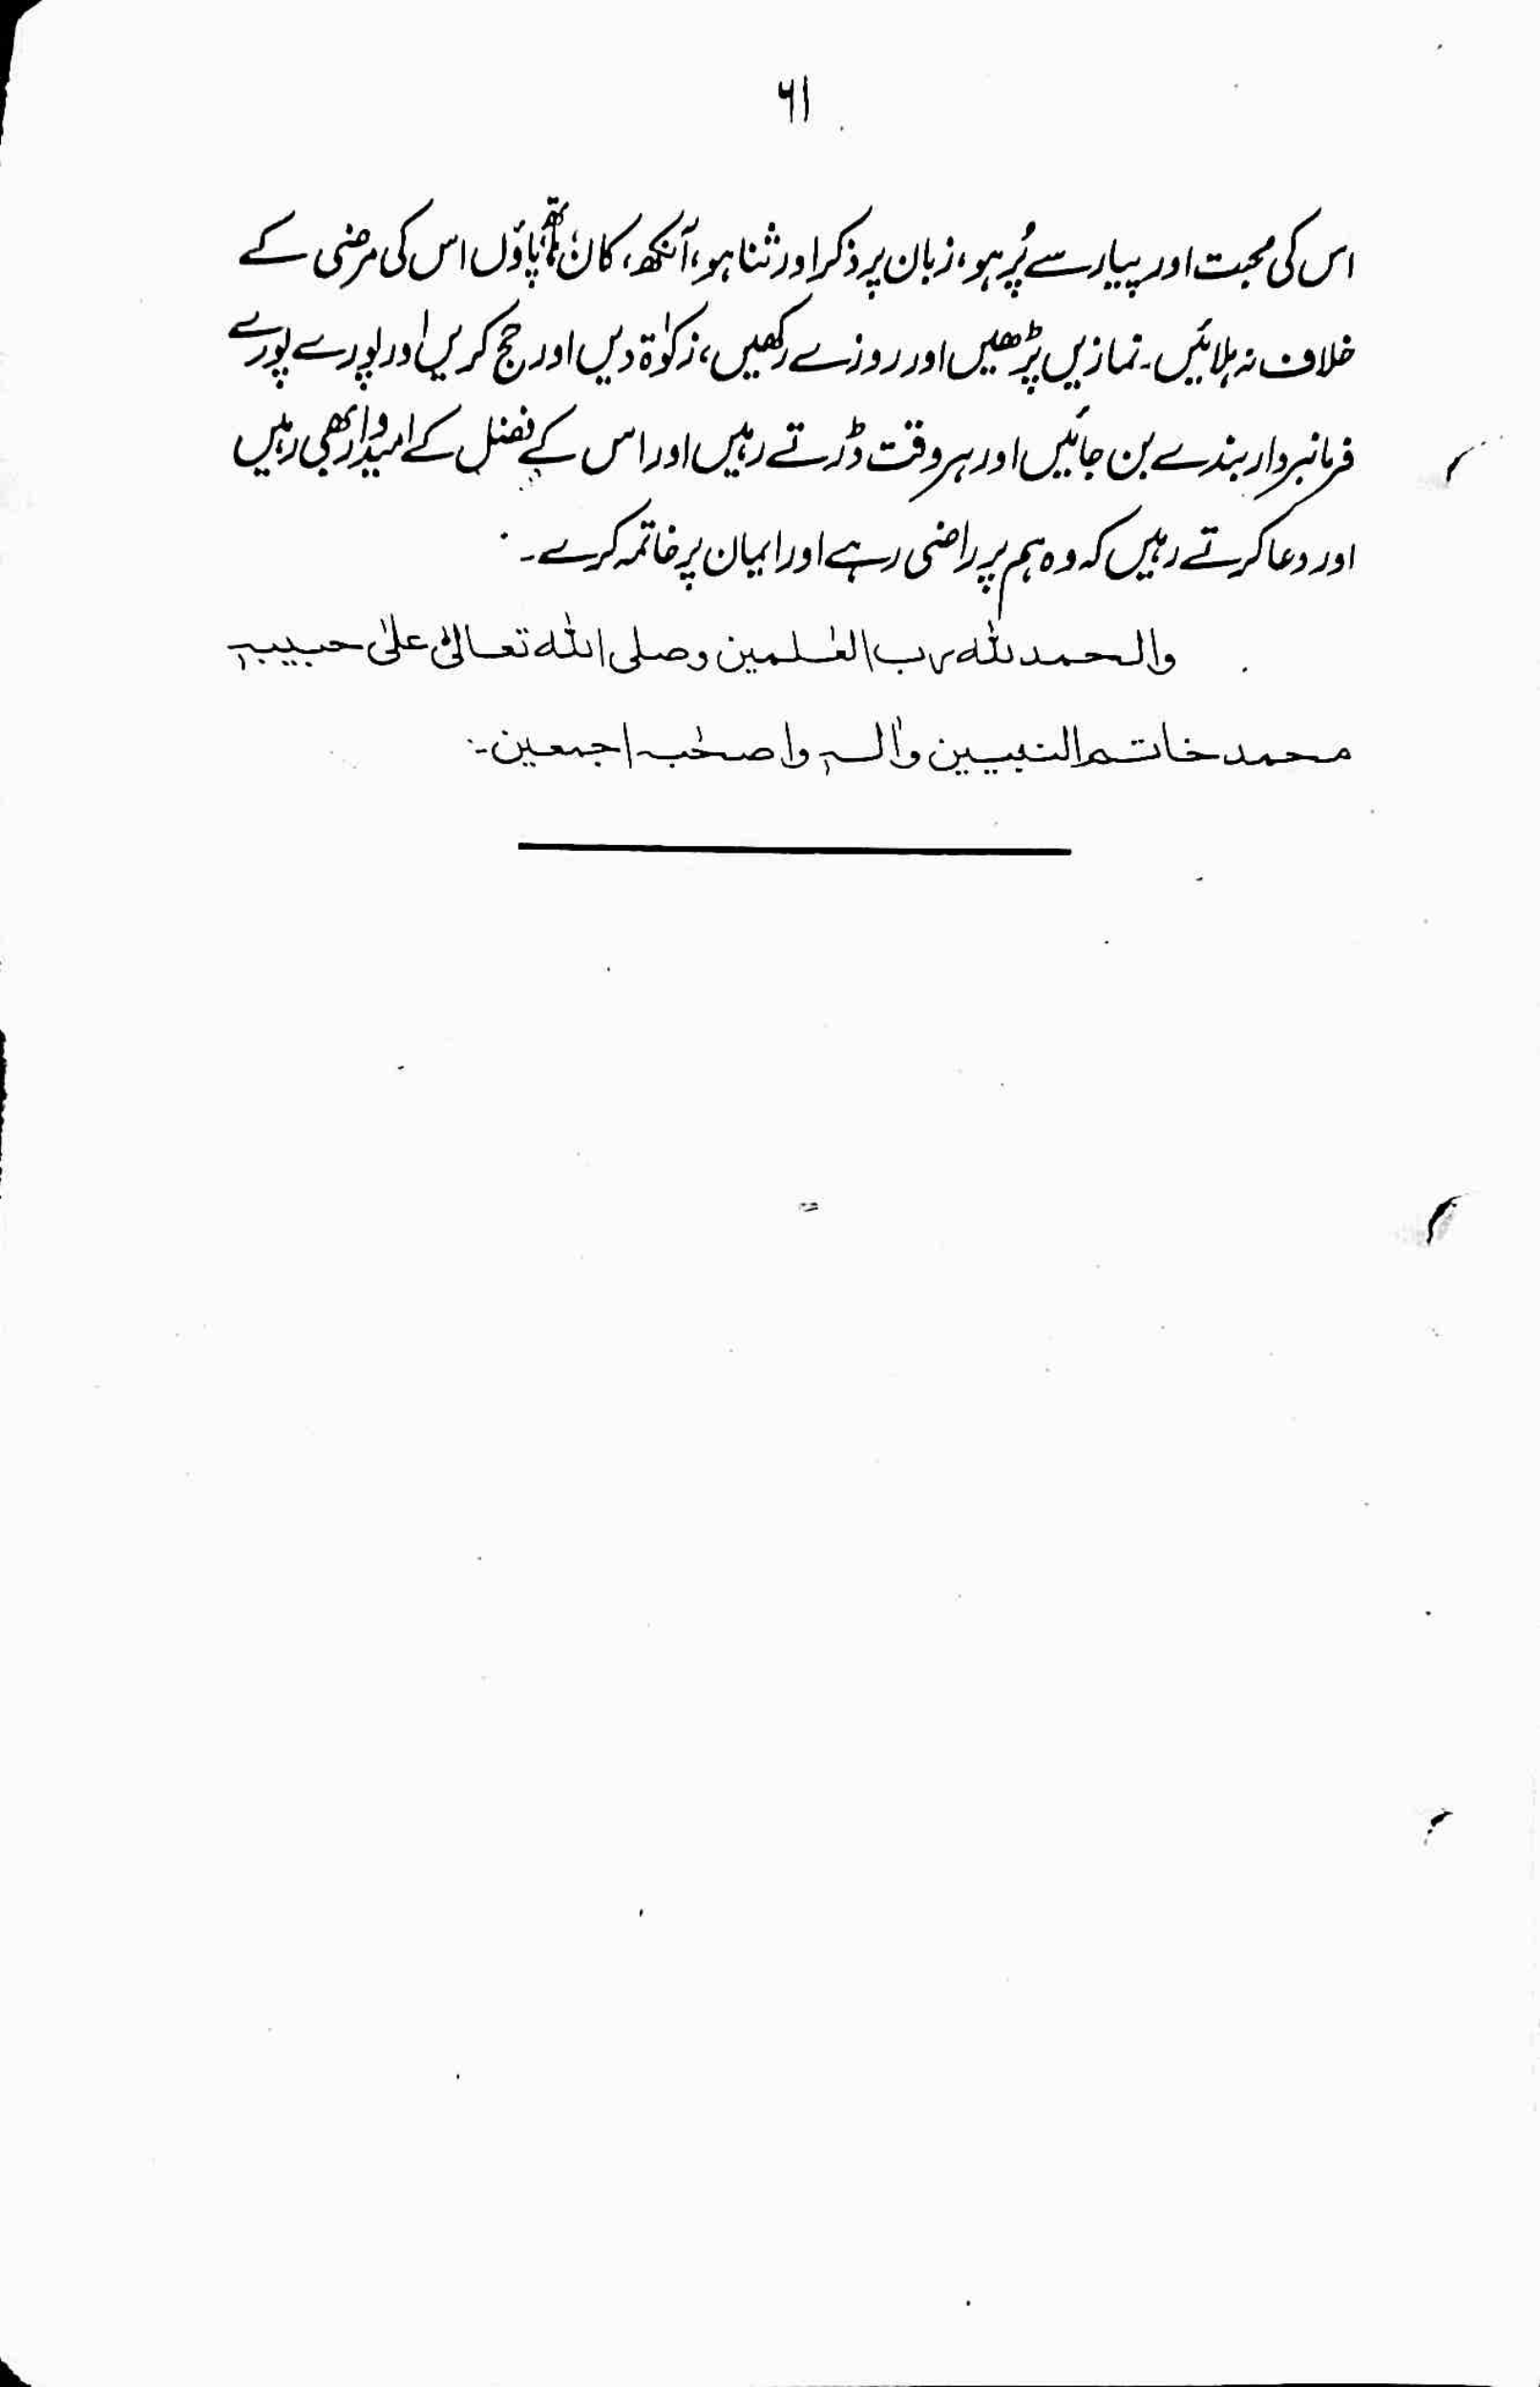 ۶۱
اس کی محبت اور پیار سے پُر ہو، زبان پر ذکر اور ثنا ہو، آنکھ، کان، ہاتھ، پاؤں اس کی مرضی کے
خلاف نہ ہلائیں۔ نمازیں پڑھیں اور روزے رکھیں، زکوٰۃ دیں اور حج کریں اور پورے پورے
فرمانبردار بندے بن جائیں اور ہر وقت ڈرتے رہیں اور اس کے فضل کے امیدوار بھی رہیں
اور دعا کرتے رہیں کہ وہ ہم پر راضی رہے اور ایمان پر خاتمہ کرے۔
والحمد لله رب العٰلمین وصلی الله تعالیٰ علیٰ حبیبہٖ
محمد خاتم النبیین واٰلہٖ واصحٰبہ اجمعین۔